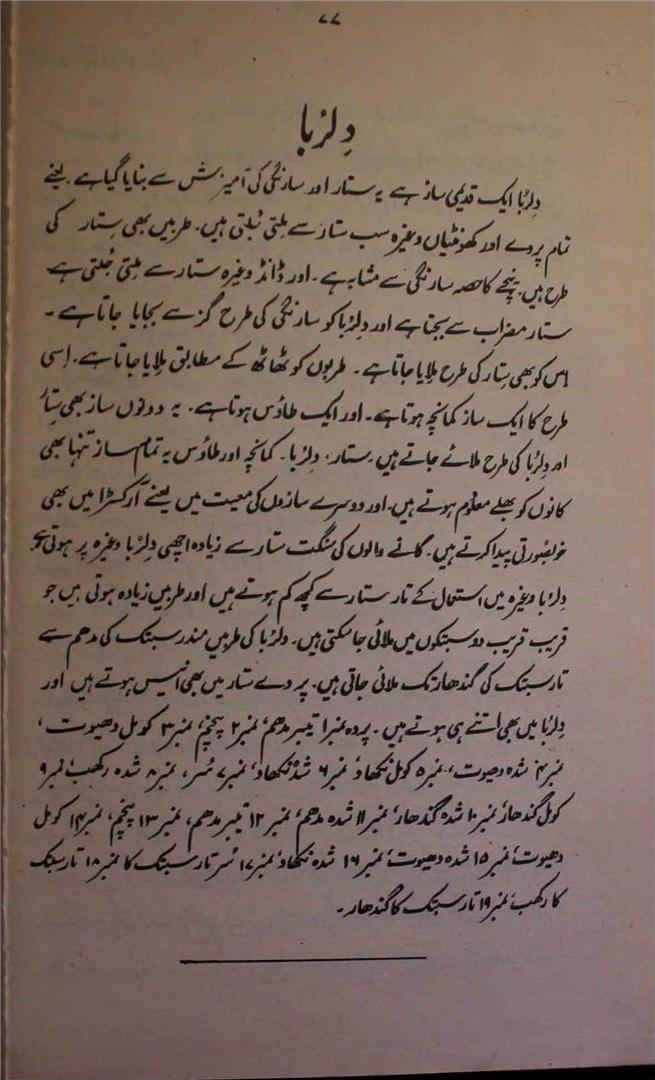 ۷۷
دِلرُبا
دِلرُبا ایک قدیمی ساز ہے یہ ستار اور سارنگی کی آمیزش سے بنایا گیا ہے یعنے
تمام پردے اور کھونٹیاں وغیرہ سب ستار سے مِلتی جُلتی ہیں۔ طربیں بھی سِتار کی
طرح ہیں۔ نیچے کا حصہ سارنگی سے مشابہ ہے۔ اور ڈانڈ وغیرہ ستار سے مِلتی جُلتی ہے
ستار مضراب سے بجتا ہے اور دِلرُبا کو سارنگی کی طرح گز سے بجایا جاتا ہے۔
اِس کو بھی سِتار کی طرح مِلایا جاتا ہے۔ طربوں کو ٹھاٹھ کے مطابق مِلایا جاتا ہے۔ اِسی
طرح کا ایک ساز کمانچہ ہوتا ہے۔ اور ایک طاؤس ہوتا ہے۔ یہ دونوں ساز بھی سِتار
اور دِلرُبا کی طرح ملائے جاتے ہیں۔ ستار، دِلرُبا۔ کمانچہ اور طاؤس یہ تمام ساز تنہا بھی
کانوں کو بھلے معلوم ہوتے ہیں۔ اور دوسرے سازوں کی معیت میں یعنے آرکسڑا میں بھی
خوبصورتی پیدا کرتے ہیں۔ گانے والوں کی سنگت ستار سے زیادہ اچھی دِلرُبا وغیرہ پر ہوتی ہے۔
دِلرُبا وغیرہ میں استعمال کے تار ستار سے کچھ کم ہوتے ہیں اور طربیں زیادہ ہوتی ہیں جو
قریب قریب دو سبتکوں میں ملائی جا سکتی ہیں۔ دِلرُبا کی طربیں مندر سبتک کی مدھم سے
تار سبتک کی گندھار تک ملائی جاتی ہیں۔ پردے ستار میں بھی انیس ہوتے ہیں اور
دِلرُبا میں بھی اتنے ہی ہوتے ہیں۔ پردہ نمبر ۱ تیبر مدھم، نمبر ۲ پنچم، نمبر ۳ کومل دھیوت،
نمبر ۴ شدہ دھیوت، نمبر ۵ کومل نکھاد، نمبر ۶ شدہ نکھاد، نمبر ۷ سُر، نمبر ۸ شدہ رکھب، نمبر ۹
کومل گندھار، نمبر ۱۰ شدہ گندھار، نمبر ۱۱ شدہ مدھم، نمبر ۱۲ تیبر مدھم، نمبر ۱۳ پنچم، نمبر ۱۴ کومل
دھیوت، نمبر ۱۵ شدہ دھیوت، نمبر ۱۶ شدہ نکھاد، نمبر ۱۷ سُر تار سبتک کا نمبر ۱۸ تار سبتک
کا رکھب، نمبر ۱۹ تار سبتک کا گندھار۔